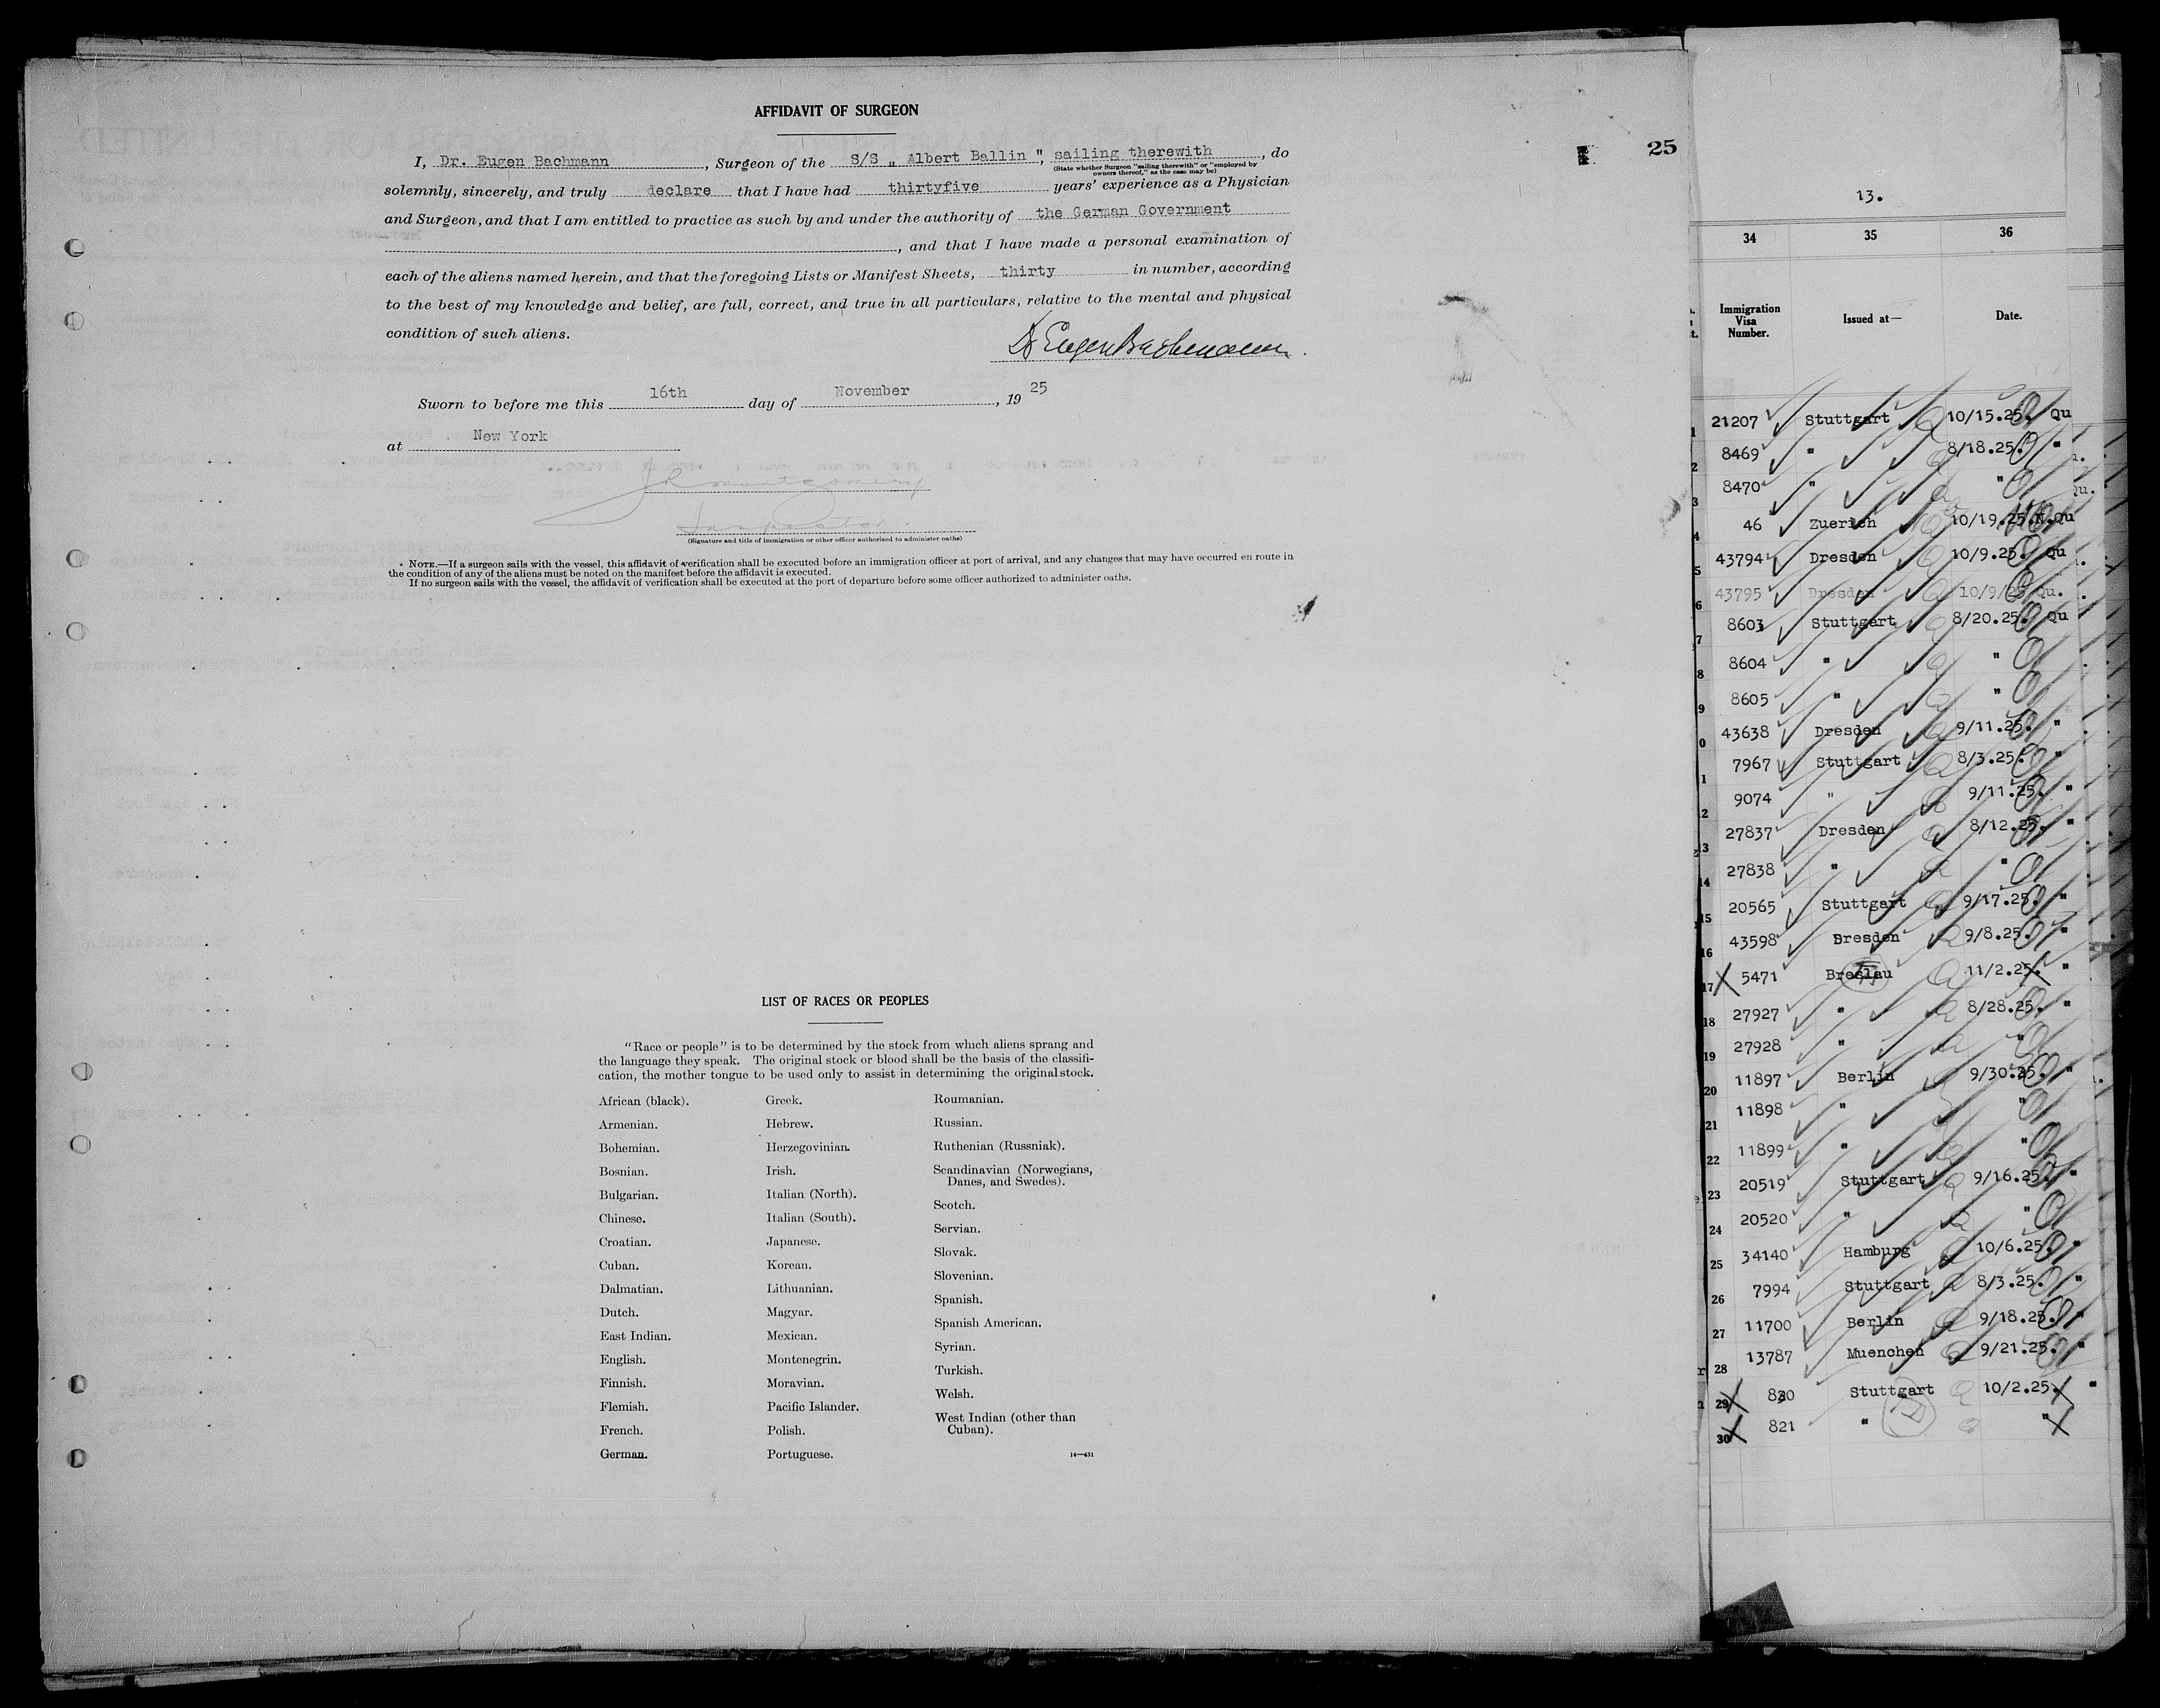 AFFIDAVIT OF SURGEON
I, Dr. Eugen Bachmann, Surgeon of the S/S „ Albert Ballin ", sailing therewith, do
(State whether Surgeon "sailing therewith" or "employed by
owners thereof," as the case may be)
solemnly, sincerely, and truly declare that I have had thirtyfive years' experience as a Physician
and Surgeon, and that I am entitled to practice as such by and under the authority of the German Government
, and that I have made a personal examination of
each of the aliens named herein, and that the foregoing Lists or Manifest Sheets, thirty in number, according
to the best of my knowledge and belief, are full, correct, and true in all particulars, relative to the mental and physical
condition of such aliens.
Dr Eugen Bachmann.
Sworn to before me this 16th day of November, 19 25
at New York
J R Montgomery
Inspector.
(Signature and title of immigration or other officer authorized to administer oaths)
NOTE.—If a surgeon sails with the vessel, this affidavit of verification shall be executed before an immigration officer at port of arrival, and any changes that may have occurred en route in
the condition of any of the aliens must be noted on the manifest before the affidavit is executed.
If no surgeon sails with the vessel, the affidavit of verification shall be executed at the port of departure before some officer authorized to administer oaths.
LIST OF RACES OR PEOPLES
"Race or people" is to be determined by the stock from which aliens sprang and
the language they speak. The original stock or blood shall be the basis of the classifi-
cation, the mother tongue to be used only to assist in determining the original stock.
African (black).
Armenian.
Bohemian.
Bosnian.
Bulgarian.
Chinese.
Croatian.
Cuban.
Dalmatian.
Dutch.
East Indian.
English.
Finnish.
Flemish.
French.
German.
Greek.
Hebrew.
Herzegovinian.
Irish.
Italian (North).
Italian (South).
Japanese.
Korean.
Lithuanian.
Magyar.
Mexican.
Montenegrin.
Moravian.
Pacific Islander.
Polish.
Portuguese.
Roumanian.
Russian.
Ruthenian (Russniak).
Scandinavian (Norwegians,
Danes, and Swedes).
Scotch.
Servian.
Slovak.
Slovenian.
Spanish.
Spanish American.
Syrian.
Turkish.
Welsh.
West Indian (other than
Cuban).
14—431
25
13.
34 35 36
Immigration
Visa
Number.
Issued at—
Date.
1 21207 Stuttgart 10/15.25. Qu
2 8469 " 8/18.25. "
3 8470 " "
4 46 Zuerich 10/19.25.N.Qu
5 43794 Dresden 10/9.25. Qu
6 43795 Dresden 10/9/25 Qu.
7 8603 Stuttgart 8/20.25. Qu
8 8604 " "
9 8605 " "
0 43638 Dresden 9/11.25. "
1 7967 Stuttgart 8/3.25. "
2 9074 " 9/11.25. "
13 27837 Dresden 8/12.25. "
14 27838 " "
15 20565 Stuttgart 9/17.25. "
16 43598 Dresden 9/8.25. "
17 X 5471 Breslau 11/2.25. "
18 27927 " 8/28.25. "
19 27928 " "
20 11897 Berlin 9/30.25. "
21 11898 " "
22 11899 " "
23 20519 Stuttgart 9/16.25. "
24 20520 " "
25 34140 Hamburg 10/6.25. "
26 7994 Stuttgart 8/3.25. "
27 11700 Berlin 9/18.25. "
28 13787 Muenchen 9/21.25. "
29 X 820 Stuttgart 10/2.25. "
30 X 821 " "